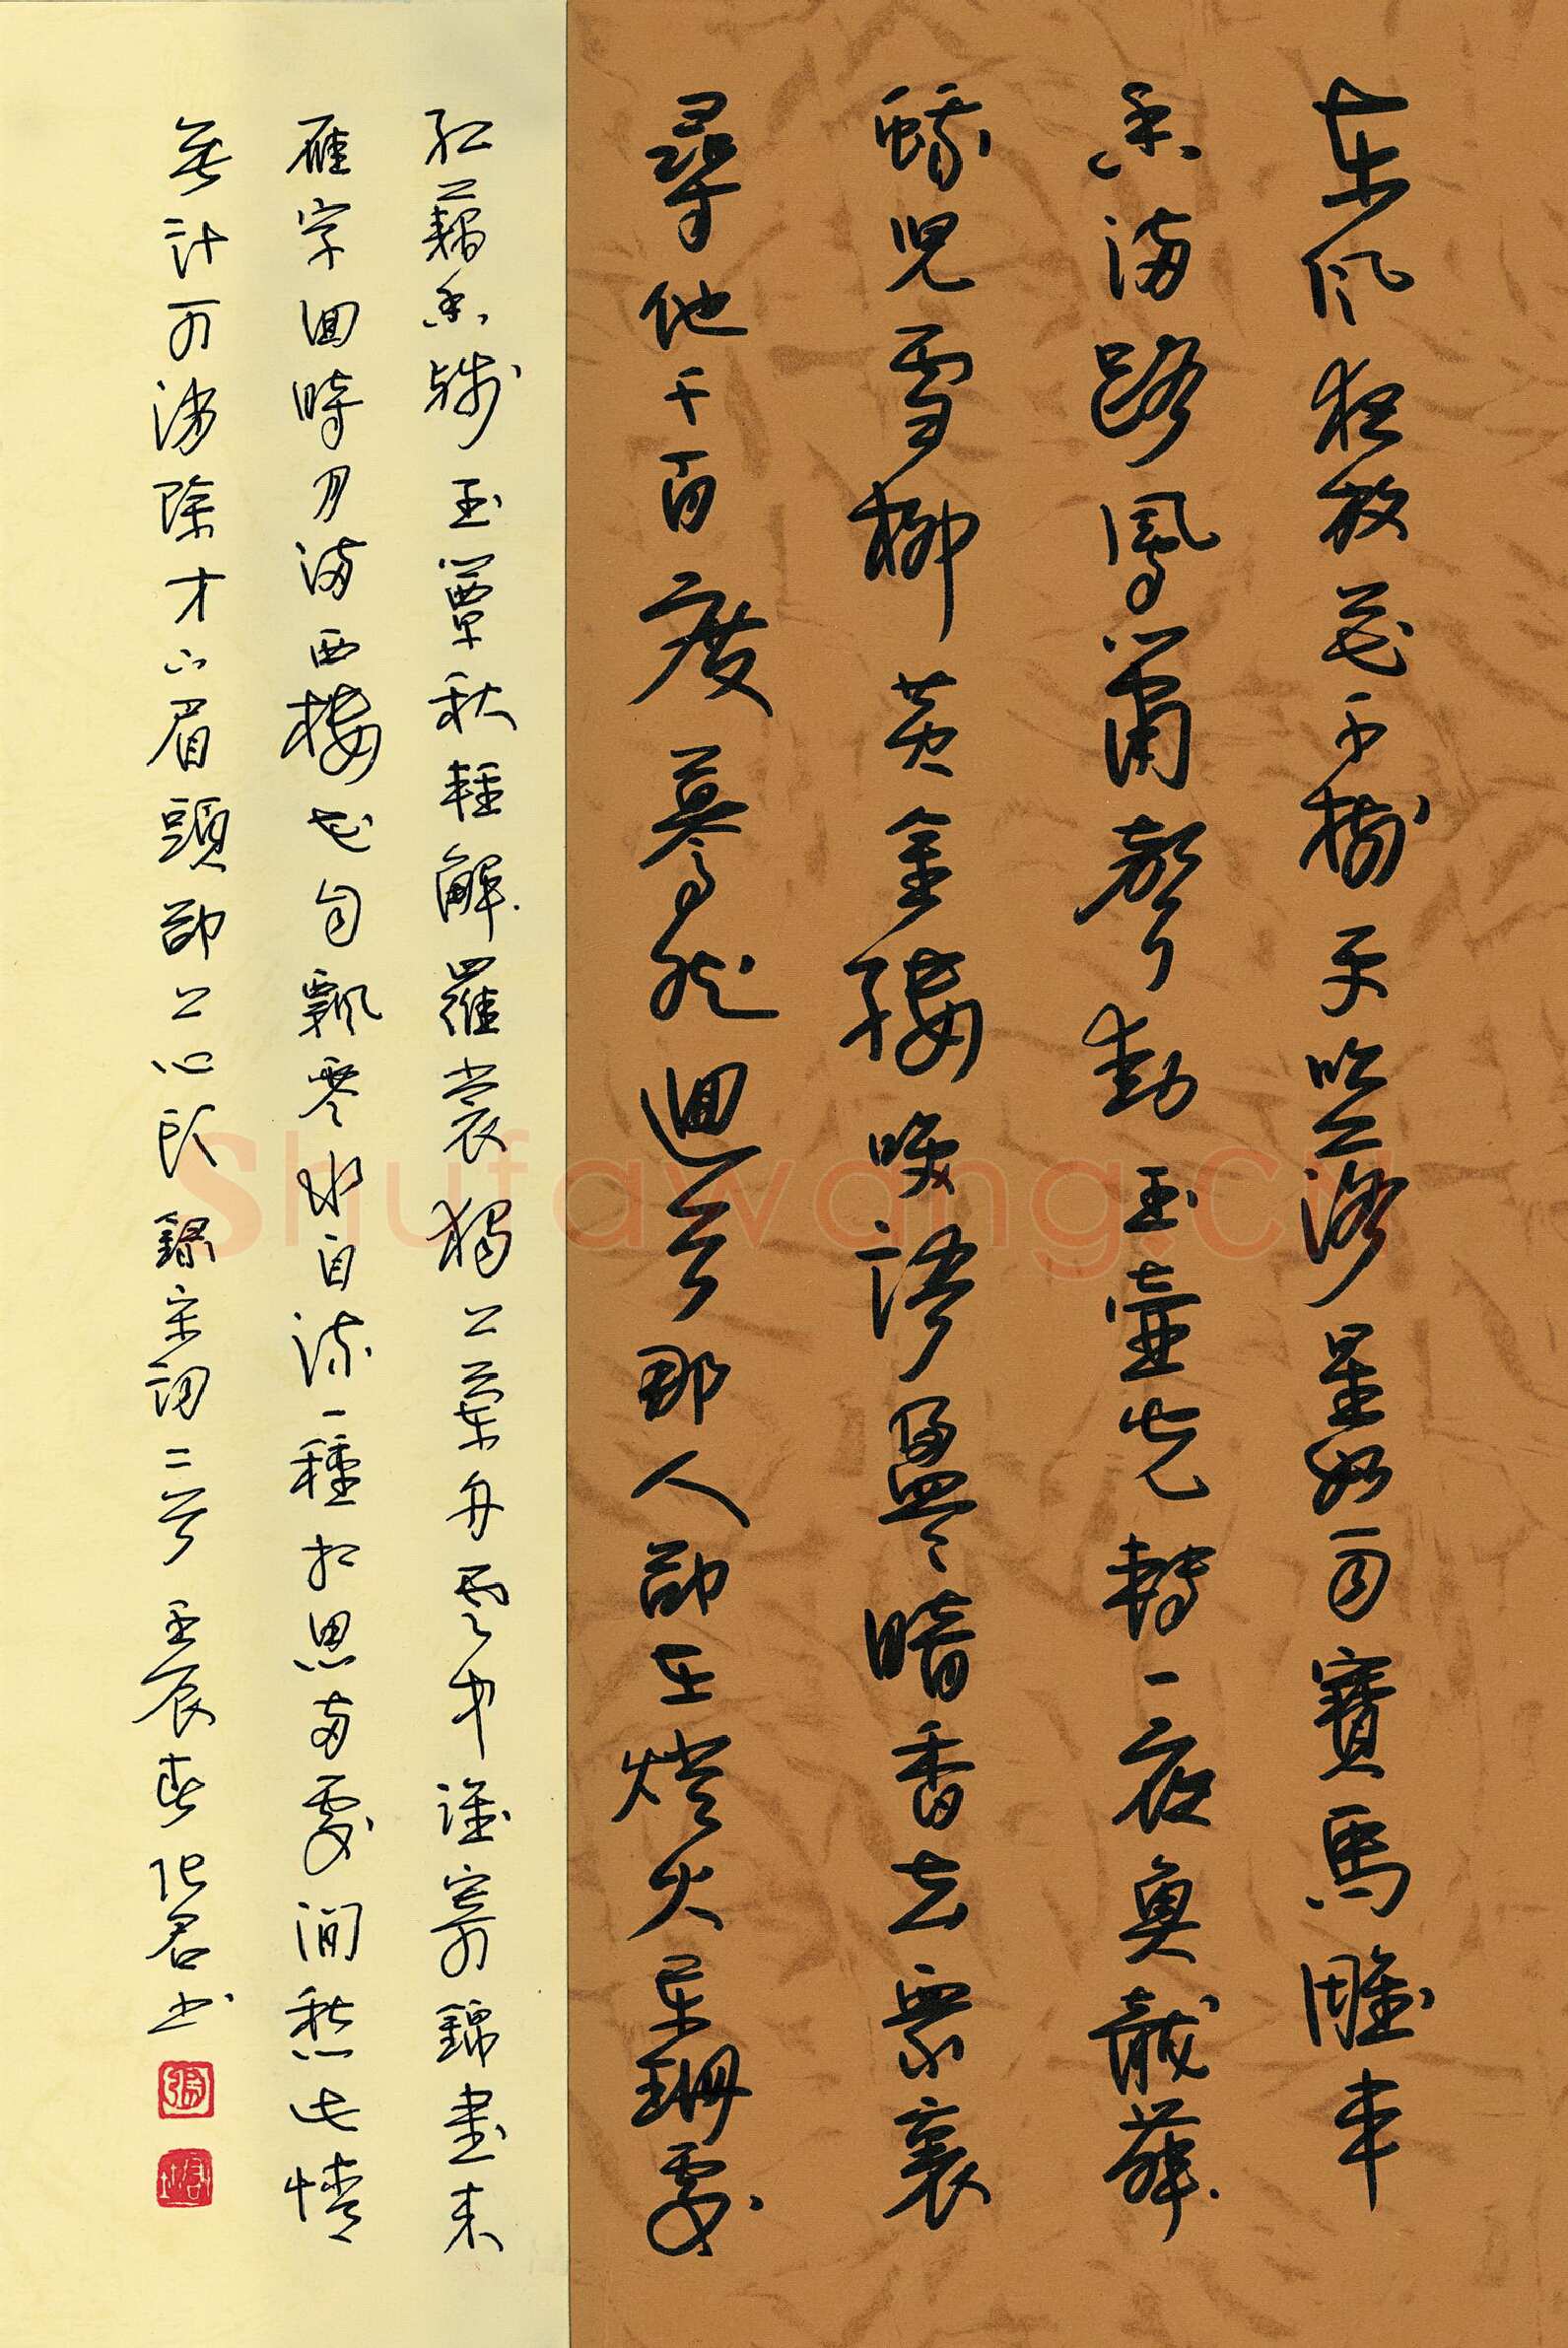 东风夜放花千樹更吹落星如雨寶馬雕車
香滿路鳳簫聲動玉壺光轉一夜魚龍舞
蛾兒雪柳黄金縷咲語盈盈暗香去眾裏
尋他千百度驀然迴首那人卻在燈火闌珊處
紅藕香殘玉簟秋輕解羅裳獨上蘭舟雲中誰寄錦書来
雁字回時月滿西樓花自飄零水自流一種相思兩處閒愁此情
無計可消除才下眉頭卻上心頭錄宋詞二首壬辰春張君书
Shufawang.cn